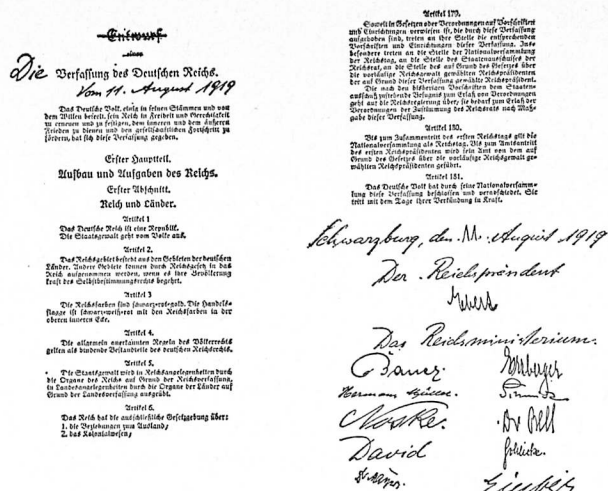 Entwurf
einer
Die Verfassung des Deutschen Reichs.
Vom 11. August 1919
Das Deutsche Volk, einig in seinen Stämmen und von
dem Willen beseelt, sein Reich in Freiheit und Gerechtigkeit
zu erneuen und zu festigen, dem inneren und dem äußeren
Frieden zu dienen und den gesellschaftlichen Fortschritt zu
fördern, hat sich diese Verfassung gegeben.
Erster Hauptteil.
Aufbau und Aufgaben des Reichs.
Erster Abschnitt.
Reich und Länder.
Artikel 1
Das Deutsche Reich ist eine Republik.
Die Staatsgewalt geht vom Volke aus.
Artikel 2.
Das Reichsgebiet besteht aus den Gebieten der deutschen
Länder. Andere Gebiete können durch Reichsgesetz in das
Reich aufgenommen werden, wenn es ihre Bevölkerung
kraft des Selbstbestimmungsrechts begehrt.
Artikel 3
Die Reichsfarben sind schwarz-rot-gold. Die Handels-
flagge ist schwarz-weiß-rot mit den Reichsfarben in der
oberen inneren Ecke.
Artikel 4.
Die allgemein anerkannten Regeln des Völkerrechts
gelten als bindende Bestandteile des deutschen Reichsrechts.
Artikel 5.
Die Staatsgewalt wird in Reichsangelegenheiten durch
die Organe des Reichs auf Grund der Reichsverfassung,
in Landesangelegenheiten durch die Organe der Länder auf
Grund der Landesverfassung ausgeübt.
Artikel 6.
Das Reich hat die ausschließliche Gesetzgebung über:
1. die Beziehungen zum Ausland;
2. das Kolonialwesen;
Artikel 179.
Soweit in Gesetzen oder Verordnungen auf Vorschriften
und Einrichtungen verwiesen ist, die durch diese Verfassung
aufgehoben sind, treten an ihre Stelle die entsprechenden
Vorschriften und Einrichtungen dieser Verfassung. Ins-
besondere treten an die Stelle der Nationalversammlung
der Reichstag, an die Stelle des Staatenausschusses der
Reichsrat, an die Stelle des auf Grund des Gesetzes über
die vorläufige Reichsgewalt gewählten Reichspräsidenten
der auf Grund dieser Verfassung gewählte Reichspräsident.
Die nach den bisherigen Vorschriften dem Staaten-
ausschuß zustehende Befugnis zum Erlaß von Verordnungen
geht auf die Reichsregierung über; sie bedarf zum Erlaß der
Verordnungen der Zustimmung des Reichsrats nach Maß-
gabe dieser Verfassung.
Artikel 180.
Bis zum Zusammentritt des ersten Reichstags gilt die
Nationalversammlung als Reichstag. Bis zum Amtsantritt
des ersten Reichspräsidenten wird sein Amt von dem auf
Grund des Gesetzes über die vorläufige Reichsgewalt ge-
wählten Reichspräsidenten geführt.
Artikel 181.
Das Deutsche Volk hat durch seine Nationalversamm-
lung diese Verfassung beschlossen und verabschiedet. Sie
tritt mit dem Tage ihrer Verkündung in Kraft.
Schwarzburg, den 11. August 1919
Der Reichspräsident
Ebert
Das Reichsministerium.
Bauer Erzberger
Hermann Müller. Schmidt
Noske. Dr Bell
David Schlicke.
Dr. Mayer. Giesberts